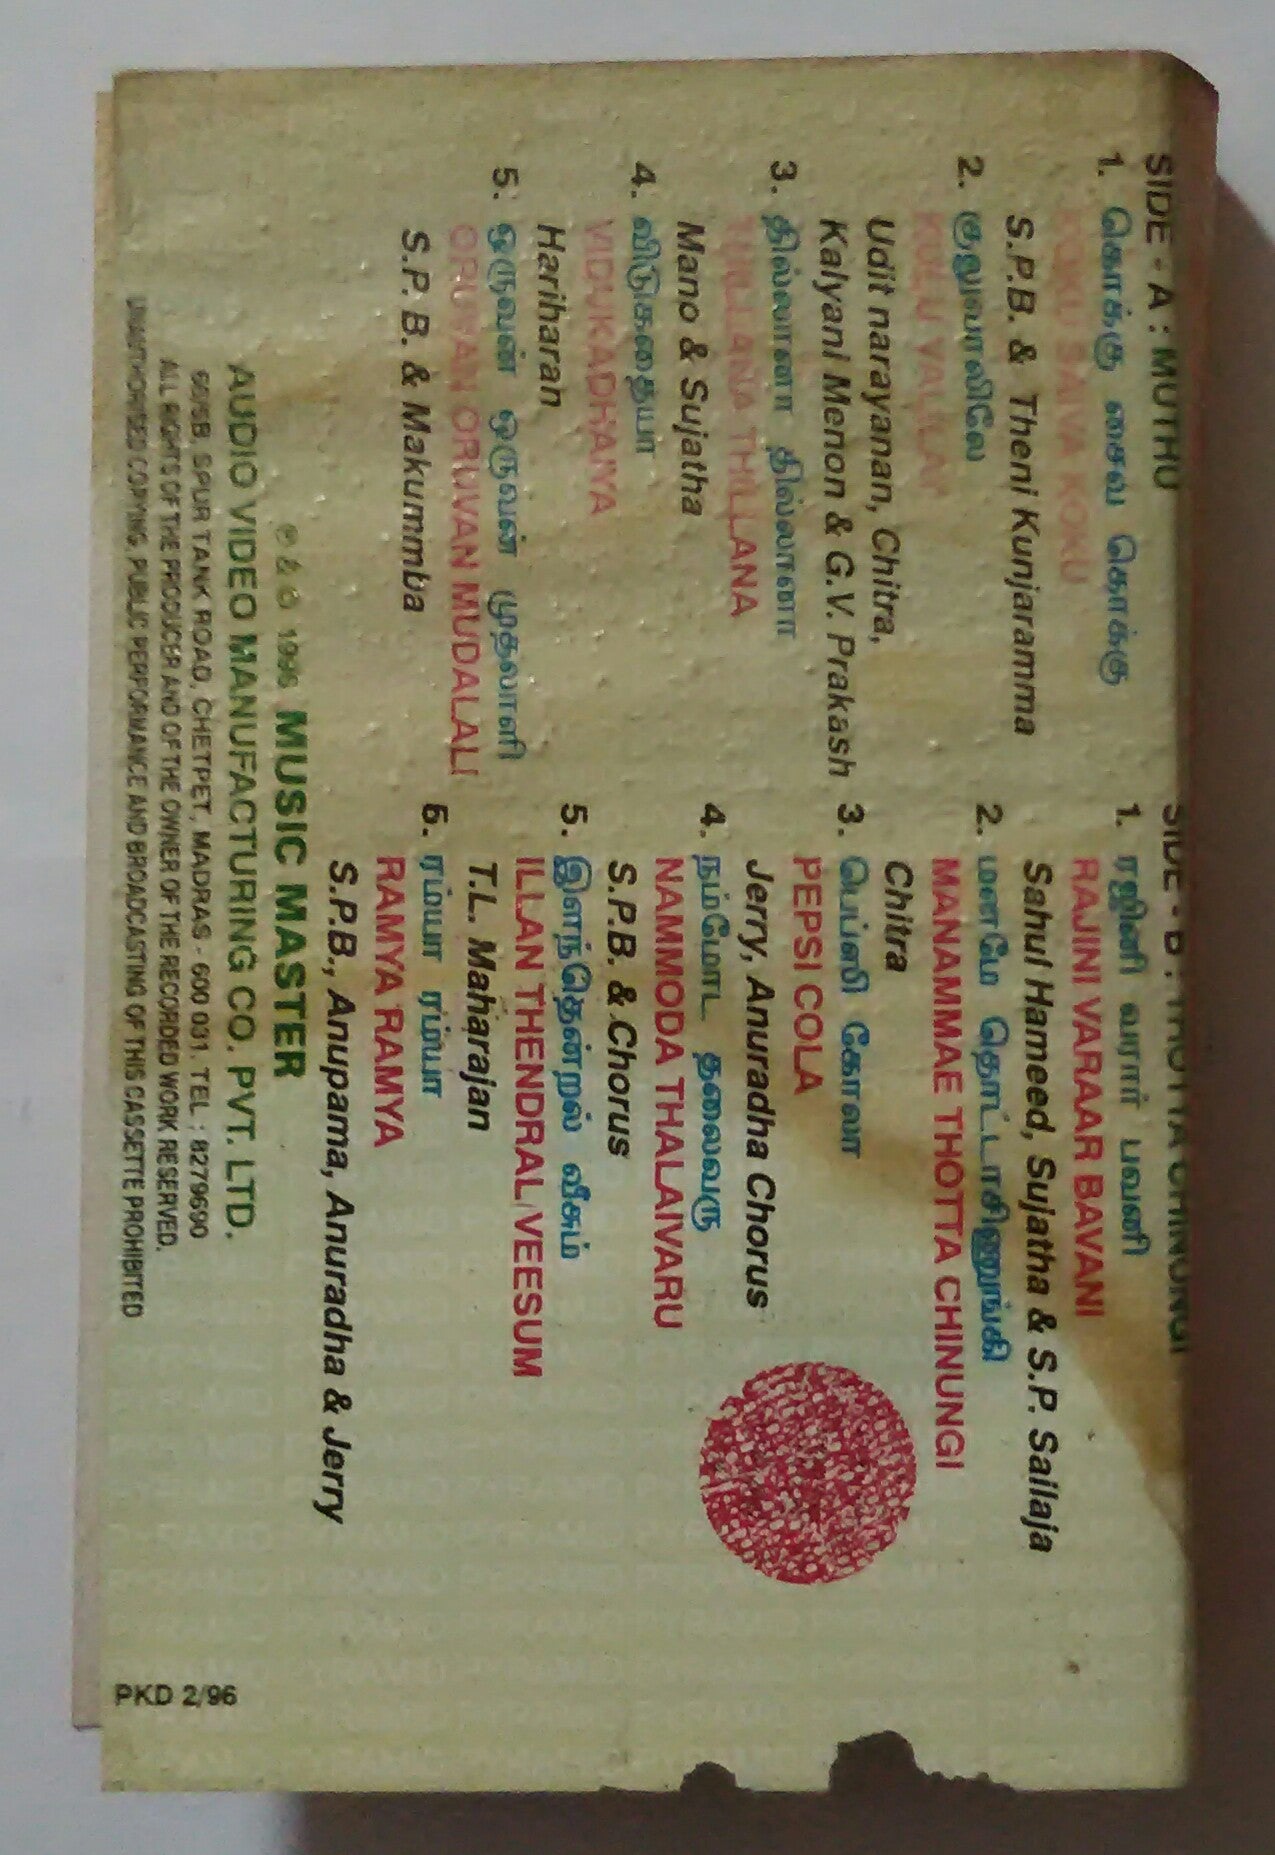 SIDE - A : MUTHU
1. கொக்கு சைவ கொக்கு
KOKU SAIVA KOKU
S.P.B. & Theni Kunjaramma
2. குலுவாலிலே
KULU VALILAI
Udit narayanan, Chitra,
Kalyani Menon & G.V. Prakash
3. தில்லானா தில்லானா
THILLANA THILLANA
Mano & Sujatha
4. விடுகதையா
VIDUKADHAIYA
Hariharan
5. ஒருவன் ஒருவன் முதலாளி
ORUVAN ORUVAN MUDALALI
S.P. B. & Makummba
SIDE - B : THOTTA CHINUNGI
1. ரஜினி வரார் பவனி
RAJINI VARAAR BAVANI
Sahul Hameed, Sujatha & S.P. Sailaja
2. மனமே தொட்டாசினுங்கி
MANAMMAE THOTTA CHINUNGI
Chitra
3. பெப்ஸி கோலா
PEPSI COLA
Jerry, Anuradha Chorus
4. நம்மோட தலைவரு
NAMMODA THALAIVARU
S.P.B. & Chorus
5. இளந்தென்றல் வீசும்
ILLAN THENDRAL VEESUM
T.L. Maharajan
6. ரம்யா ரம்யா
RAMYA RAMYA
S.P.B., Anupama, Anuradha & Jerry
℗ & © 1996 MUSIC MASTER
AUDIO VIDEO MANUFACTURING CO. PVT. LTD.
60/5B, SPUR TANK ROAD, CHETPET, MADRAS - 600 031. TEL : 8279690
ALL RIGHTS OF THE PRODUCER AND OF THE OWNER OF THE RECORDED WORK RESERVED.
UNAUTHORISED COPYING, PUBLIC PERFORMANCE AND BROADCASTING OF THIS CASSETTE PROHIBITED
PKD 2/96